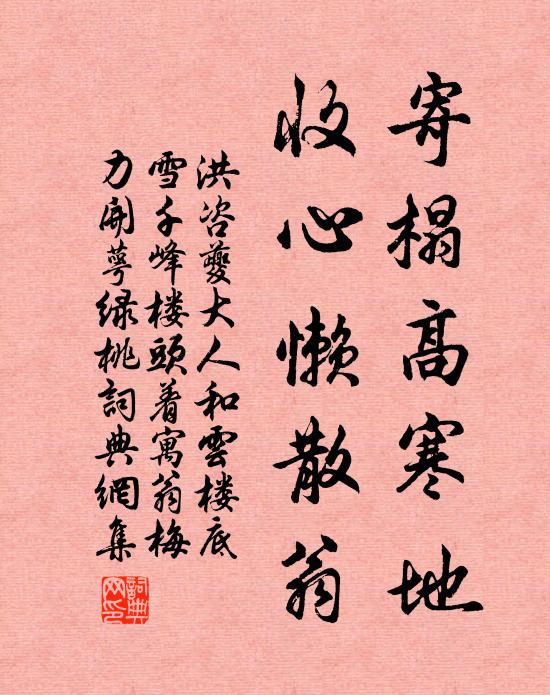 寄榻高寒地
收心懒散翁
洪咨夔大人和雲楼底
雪千峰楼頭着寓翁梅
力開萼绿桃詞典網集
詞典
网印